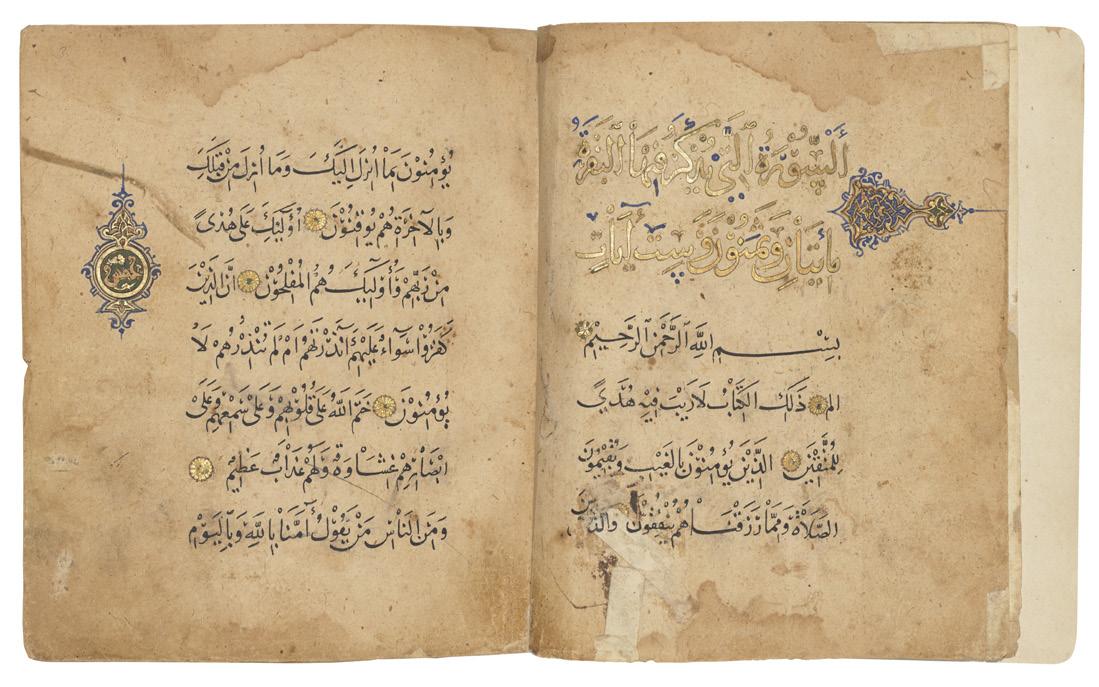 ألسّورة التي يذكر فيها البقرة
مايتان وثمنون وست آيات
بسم الله الرحمن الرحيم
الم ذلك الكتاب لا ريب فيه هدي
للمتقين الذين يؤمنون بالغيب ويقيمون
الصلاة ومما رزقناهم ينفقون والذين
يؤمنون بما انزل اليك وما انزل من قبلك
وبالآخرة هم يوقنون أولئك على هدى
من ربهم وأولئك هم المفلحون ان الذين
كفروا سواء عليهم أانذرتهم ام لم تنذرهم لا
يؤمنون ختم الله على قلوبهم وعلى سمعهم وعلى
ابصارهم غشاوة ولهم عذاب عظيم
ومن الناس من يقول آمنا بالله وباليوم